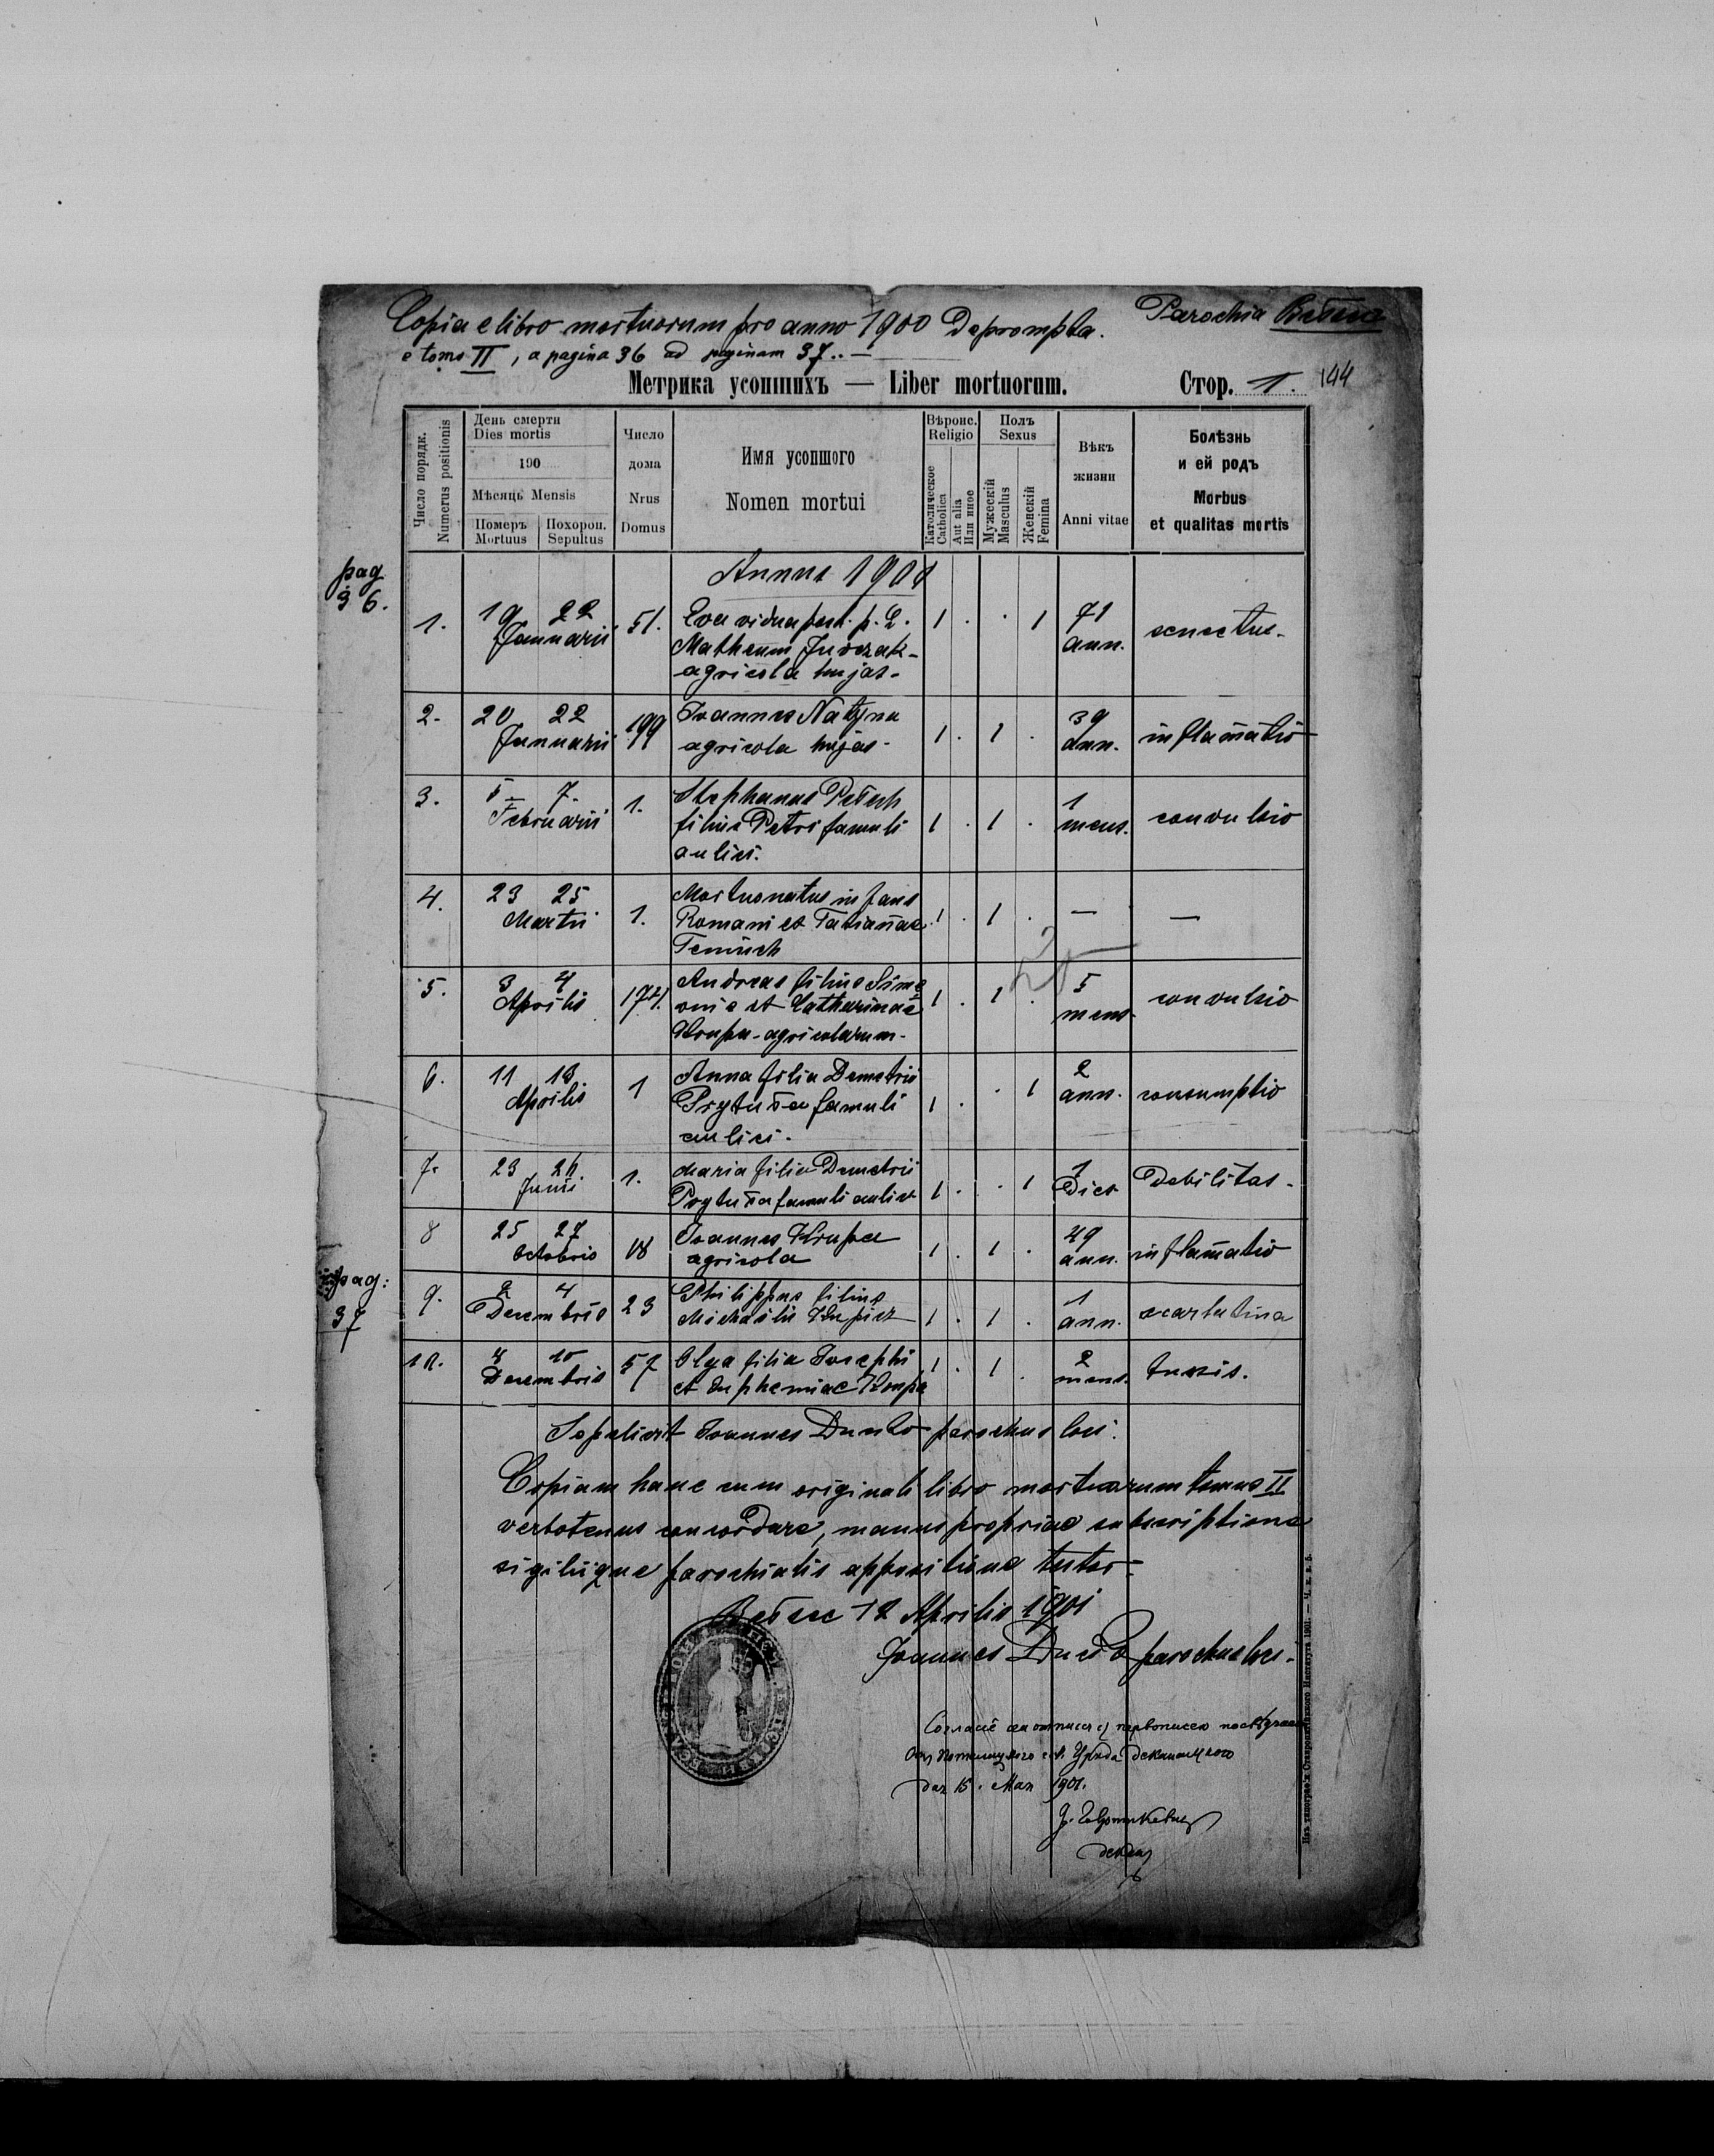 Copia e libro mortuorum pro anno 1900 deprompta. Parochia Bełzec
e tomo II, a pagina 36 ad paginam 37.. —
Метрика усопшихъ — Liber mortuorum. Стор. 1. 144
Число порядк.
Numerus positionis
День смерти
Dies mortis
190
Мѣсяць Mensis
Померъ
Mortuus
Похорон.
Sepultus
Число
дома
Nrus
Domus
Имя усопшого
Nomen mortui
Вѣроис.
Religio
Католическое
Catholica
Aut alia
Или иное
Полъ
Sexus
Мужескій
Masculus
Женскій
Femina
Вѣкъ
жизни
Anni vitae
Болѣзнь
и ей родъ
Morbus
et qualitas mortis
pag
36.
Annus 1900
1. 19 22 Januarii 51. Eva vidua post. p. d. 1 . . 1 71 ann. senectus.
Matheum
agricola hujas.
2. 20 22 Januarii 199 Joannes Natyna 1 . 1 . 39 ann. inflam̄atio
agricola hujas.
3. 5 7. Februarii 1. Stephanus 1 . 1 . 1 mens. convulsio
filius Petri famuli
aulici.
4. 23 25 Martii 1. Mortuonatus infans 1 . 1 . — —
Romani et Tatian̄ae
5. 3 4 Aprilis 174. Andreas filius Sime 1 . 1 . 5 mens. convulsio
onis et Catharinae
Krupa - agricolarum.
6. 11 13 Aprilis 1 Anna filia Demetrii 1 . . 1 2 ann. consumptio
Prytuła famuli
aulici.
7. 23 Junii 1. Maria filia Demetrii 1 . . 1 1 Dies Debilitas.
Prytuła famuli aulici
8 25 27 Octobris 18 Joannes Krupa 1 . 1 . 49 ann. inflam̄atio
agricola
pag:
37
9. 2 4 Decembris 23 Philippus filius 1 . 1 . 1 ann. scarlatina
Michaelis
10. 10 Decembris 57 Olga filia Josephi 1 . 1 . 2 mens. tussis.
et Euphemiae Krupa
Sepelivit Joannes parochus loci.
Copiam hanc cum originali libro mortuorum tomus II
verbotenus concordare, manus propriae subscriptione
sigilique parochialis appositione testor.
Bełzec 12 Aprilis 1901
Joannes parochus loci.
дня 15. Мая 1901.
деканъ
Изъ типографіи Ставропигійского Института 1901.